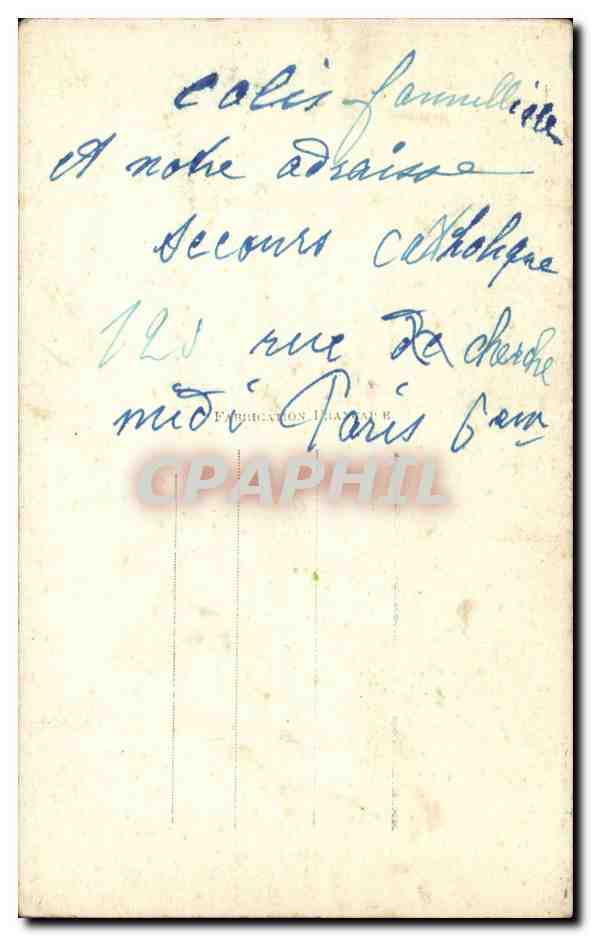 colis familliste
A notre adraisse
secours catholique
120 rue de cherche
midi Paris 6 em
FABRICATION FRANÇAISE
CPAPHIL